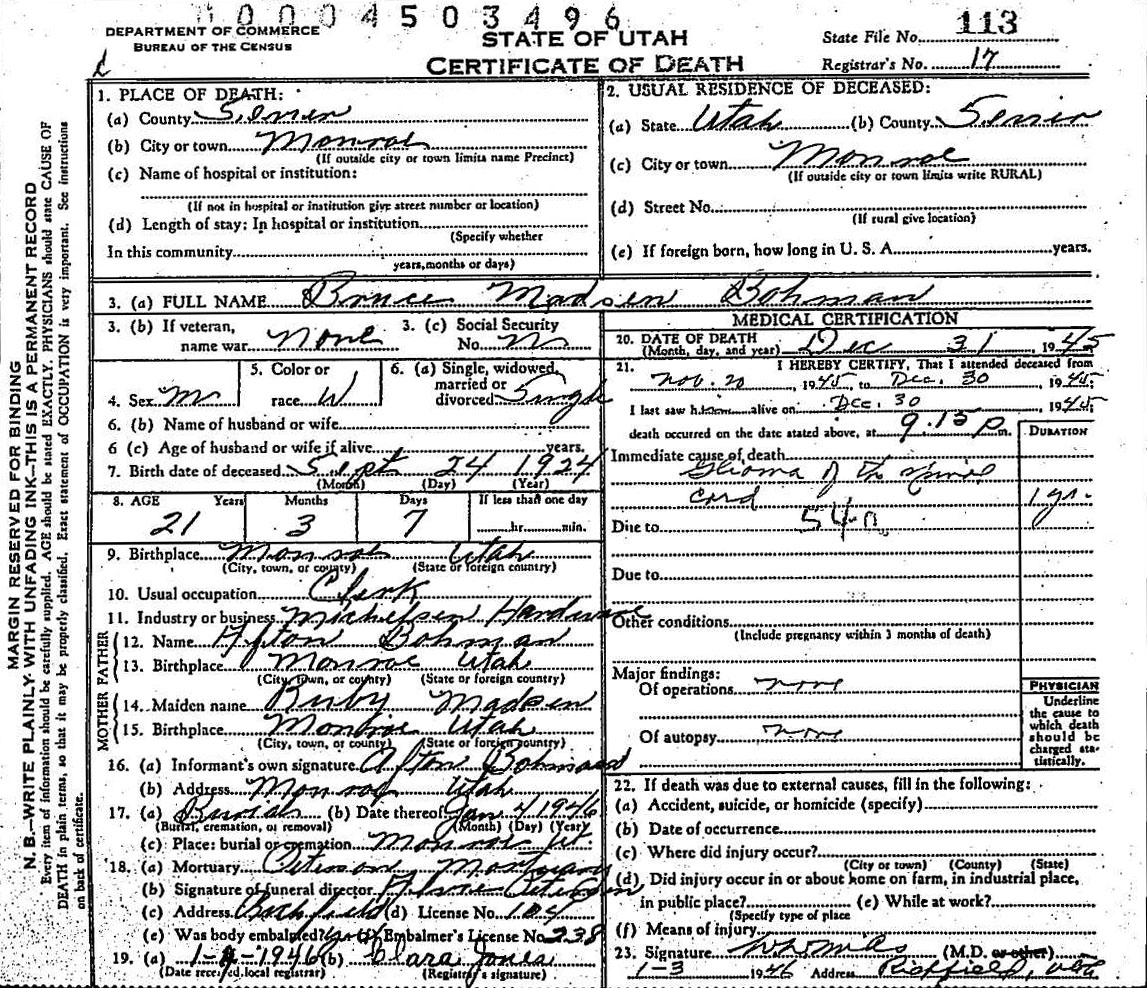 00004503496
DEPARTMENT OF COMMERCE
BUREAU OF THE CENSUS
STATE OF UTAH
CERTIFICATE OF DEATH
State File No. 113
Registrar's No. 17
MARGIN RESERVED FOR BINDING
N. B.—WRITE PLAINLY WITH UNFADING INK—THIS IS A PERMANENT RECORD
Every item of information should be carefully supplied. AGE should be stated EXACTLY. PHYSICIANS should state CAUSE OF
DEATH in plain terms, so that it may be properly classified. Exact statement of OCCUPATION is very important. See instructions
on back of certificate.
1. PLACE OF DEATH:
(a) County Sevier
(b) City or town Monroe
(If outside city or town limits name Precinct)
(c) Name of hospital or institution:
(If not in hospital or institution give street number or location)
(d) Length of stay: In hospital or institution
(Specify whether
In this community
years, months or days)
2. USUAL RESIDENCE OF DECEASED:
(a) State Utah (b) County Sevier
(c) City or town Monroe
(If outside city or town limits write RURAL)
(d) Street No.
(If rural give location)
(e) If foreign born, how long in U. S. A. years.
3. (a) FULL NAME Bruce Madsen Bohman
3. (b) If veteran, name war None
3. (c) Social Security No. No
4. Sex M
5. Color or race W
6. (a) Single, widowed, married or divorced Single
6. (b) Name of husband or wife
6 (c) Age of husband or wife if alive years.
7. Birth date of deceased Sept 24 1924
(Month) (Day) (Year)
8. AGE Years Months Days If less than one day
21 3 7 hr. min.
9. Birthplace Monroe Utah
(City, town, or county) (State or foreign country)
10. Usual occupation Clerk
11. Industry or business Michelsen Hardware
FATHER
12. Name Afton Bohman
13. Birthplace Monroe Utah
(City, town, or county) (State or foreign country)
MOTHER
14. Maiden name Ruby Madsen
15. Birthplace Monroe Utah
(City, town, or county) (State or foreign country)
16. (a) Informant's own signature Afton Bohman
(b) Address Monroe Utah
17. (a) Burial (b) Date thereof Jan 4 1946
(Burial, cremation, or removal) (Month) (Day) (Year)
(c) Place: burial or cremation Monroe Ut.
18. (a) Mortuary Peterson Mortuary
(b) Signature of funeral director Peterson
(c) Address Richfield (d) License No. 104
(e) Was body embalmed? yes (f) Embalmer's License No. 238
19. (a) 1-4-1946 (b) Clara Jones
(Date received local registrar) (Registrar's signature)
MEDICAL CERTIFICATION
20. DATE OF DEATH
(Month, day, and year) Dec 31, 1945
21. I HEREBY CERTIFY, That I attended deceased from
Nov. 20, 1945, to Dec. 30 1945;
I last saw him alive on Dec. 30 1945
death occurred on the date stated above, at 9.15 P m.
DURATION
Immediate cause of death
Glioma of the spinal
cord 1 yr.
Due to 54
Due to
Other conditions
(Include pregnancy within 3 months of death)
Major findings:
Of operations none
Of autopsy none
PHYSICIAN
Underline
the cause to
which death
should be
charged sta-
tistically.
22. If death was due to external causes, fill in the following:
(a) Accident, suicide, or homicide (specify)
(b) Date of occurrence
(c) Where did injury occur?
(City or town) (County) (State)
(d) Did injury occur in or about home on farm, in industrial place,
in public place? (e) While at work?
(Specify type of place
(f) Means of injury
23. Signature (M.D. or other)
1-3 1946 Address Richfield, Utah